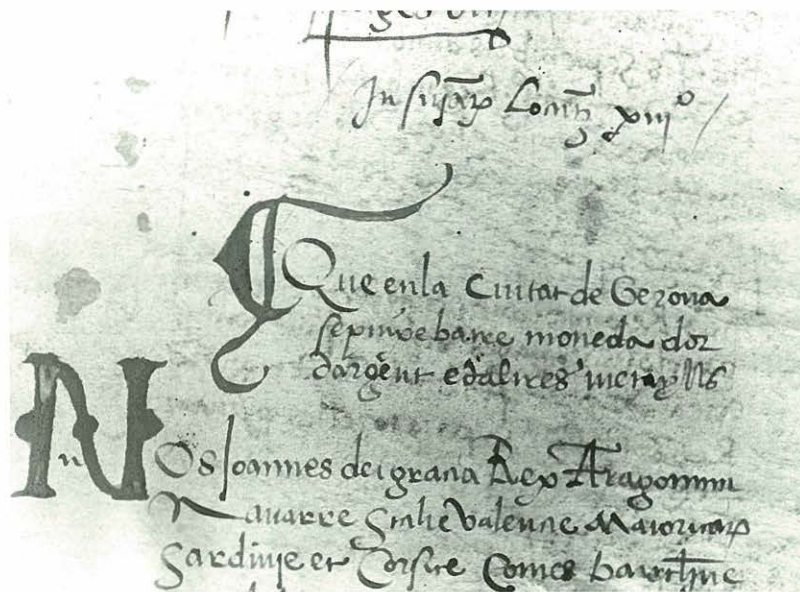 Que en la Ciutat de Gerona
se puixe batre moneda dor
dargent e daltres metaylls
NOs Joannes dei gracia Rex Aragonum
Navarre Scilie Valencie Maioricarum
Sardinie et Corsice Comes barchinone